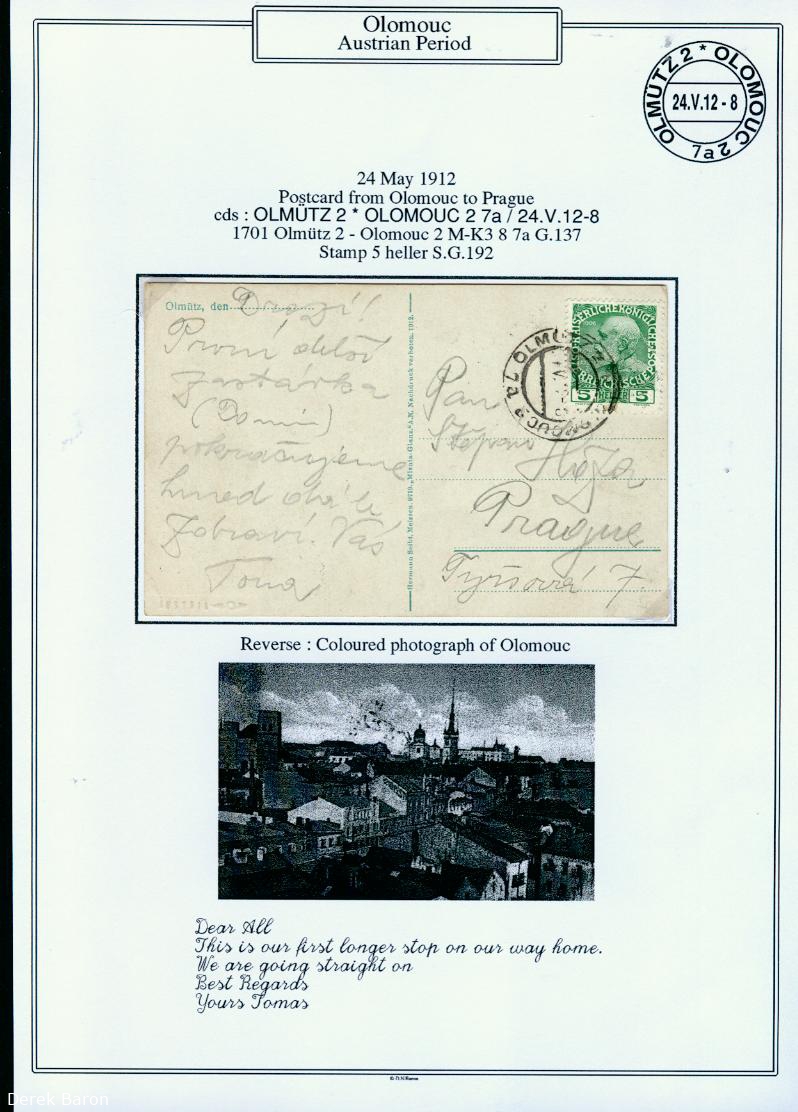 Olomouc
Austrian Period
OLMÜTZ 2 * OLOMOUC 2
24.V.12 - 8
7a
24 May 1912
Postcard from Olomouc to Prague
cds : OLMÜTZ 2 * OLOMOUC 2 7a / 24.V.12-8
1701 Olmütz 2 - Olomouc 2 M-K3 8 7a G.137
Stamp 5 heller S.G.192
Olmütz, den
Drazí!
První delší
zastávka
(Domů)
pokračujeme
hned dále
Zdraví Váš
Toma
Nachdruck verboten. 1912.
Pan
Prague
Tyršova 7.
5 5
Reverse : Coloured photograph of Olomouc
Dear All
This is our first longer stop on our way home.
We are going straight on
Best Regards
Yours Tomas
Derek Baron